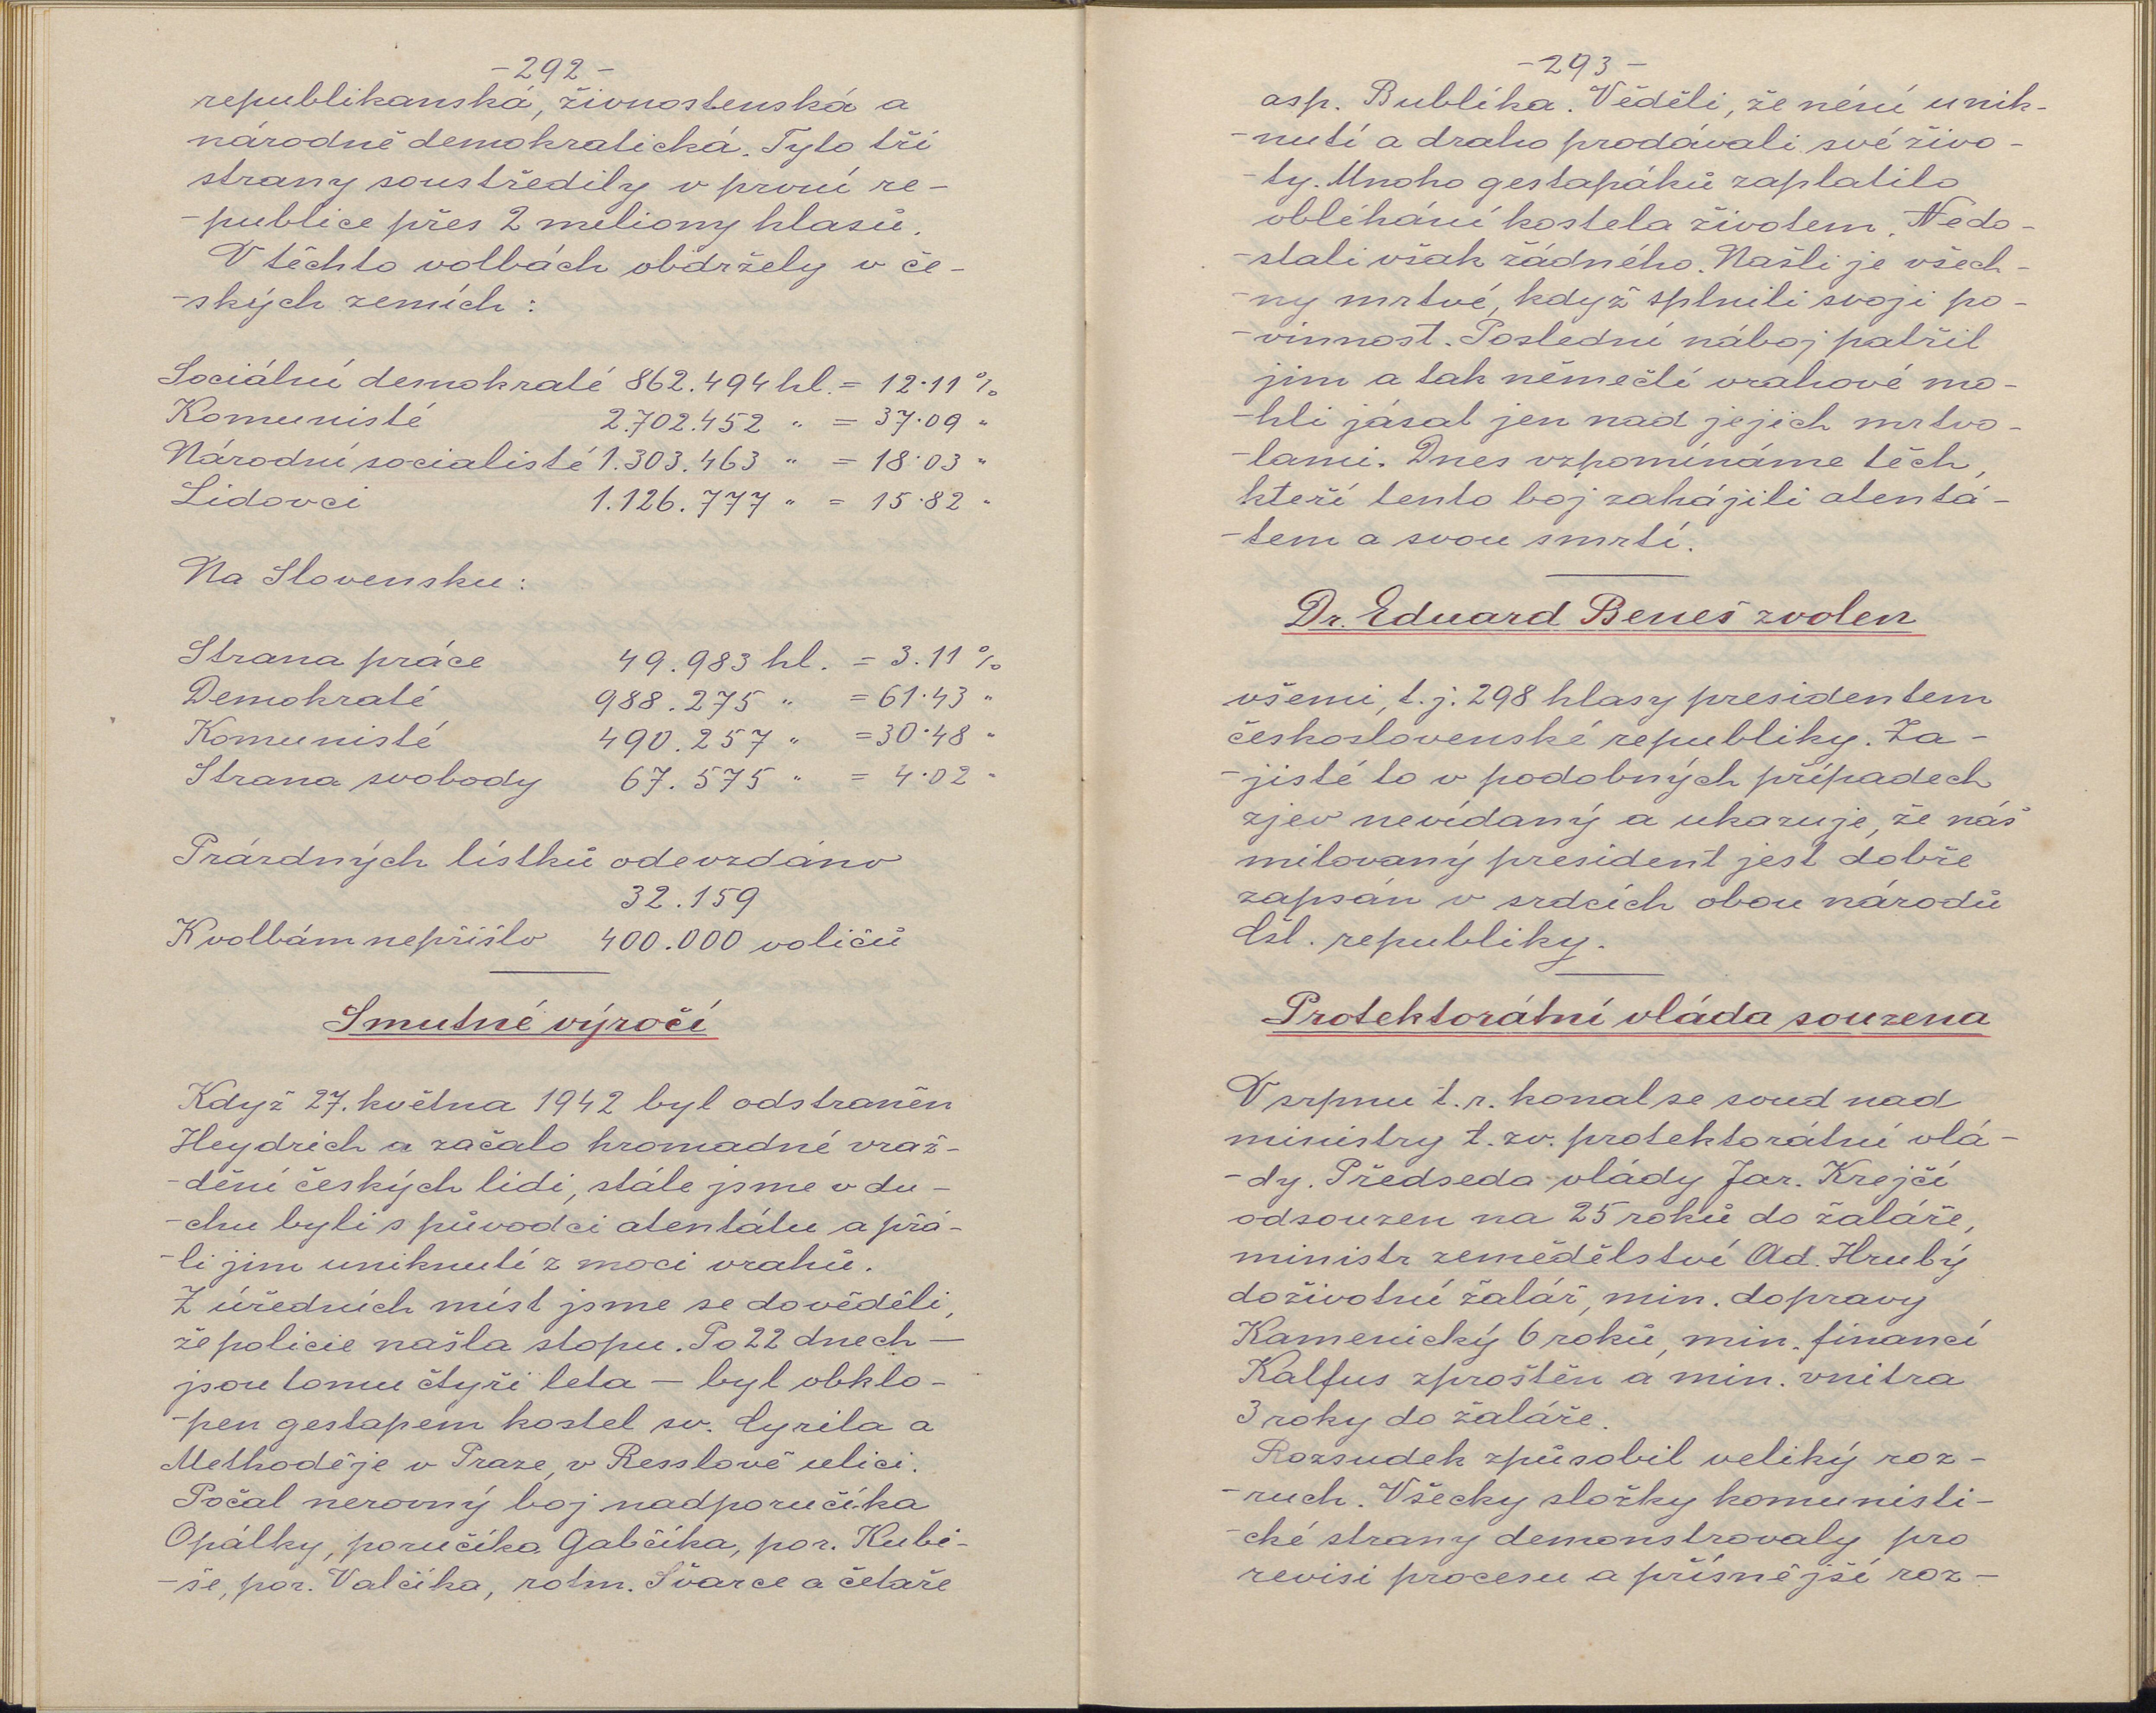 -292-
republikanská, živnostenská a
národně demokratická. Tyto tři
strany soustředily v první re-
-publice přes 2 meliony hlasů.
V těchto volbách obdržely v če-
-ských zemích:
Sociální demokraté 862.494 hl. = 12·11 %
Komunisté 2.702.452 " = 37·09 "
Národní socialisté 1.303.463 " = 18·03 "
Lidovci 1.126.777 " = 15·82 "
Na Slovensku:
Strana práce 49.983 hl. = 3.11 %
Demokraté 988.275 " = 61·43 "
Komunisté 490.257 " = 30·48 "
Strana svobody 67.575 " = 4·02 "
Prázdných lístků odevzdáno
32.159
K volbám nepřišlo 400.000 voličů
Smutné výročí
Když 27. května 1942 byl odstraněn
Heydrich a začalo hromadné vraž-
-dění českých lidi, stále jsme v du-
-chu byli s původci atentátu a přá-
-li jim uniknutí z moci vrahů.
Z úředních míst jsme se dověděli,
že policie našla stopu. Po 22 dnech —
jsou tomu čtyři leta — byl obklo-
-pen gestapem kostel sv. Cyrila a
Methoděje v Praze, v Resslově ulici.
Počal nerovný boj nadporučíka
Opálky, poručíka Gabčíka, por. Kubi-
-še, por. Valčíka, rotm. Švarce a četaře
-293-
asp. Bublíka. Věděli, že není unik-
-nutí a draho prodávali své živo-
-ty. Mnoho gestapáků zaplatilo
obléhání kostela životem. Nedo-
-stali však žádného. Našli je všech-
-ny mrtvé, když splnili svoji po-
-vinnost. Poslední náboj patřil
jim a tak němečtí vrahové mo-
-hli jásat jen nad jejich mrtvo-
-lami. Dnes vzpomínáme těch,
kteří tento boj zahájili atentá-
-tem a svou smrtí.
Dr. Eduard Beneš zvolen
všemi, t.j. 298 hlasy presidentem
československé republiky. Za-
-jisté to v podobných případech
zjev nevídaný a ukazuje, že náš
milovaný president jest dobře
zapsán v srdcích obou národů
Čsl. republiky.
Protektorátní vláda souzena
V srpnu t.r. konal se soud nad
ministry t. zv. protektorátní vlá-
-dy. Předseda vlády Jar. Krejčí
odsouzen na 25 roků do žaláře,
ministr zemědělství Ad. Hrubý
doživotní žalář, min. dopravy
Kamenický 6 roků, min. financí
Kalfus zproštěn a min. vnitra
3 roky do žaláře.
Rozsudek způsobil veliký roz-
-ruch. Všecky složky komunisti-
-cké strany demonstrovaly pro
revisi procesu a přísnější roz-